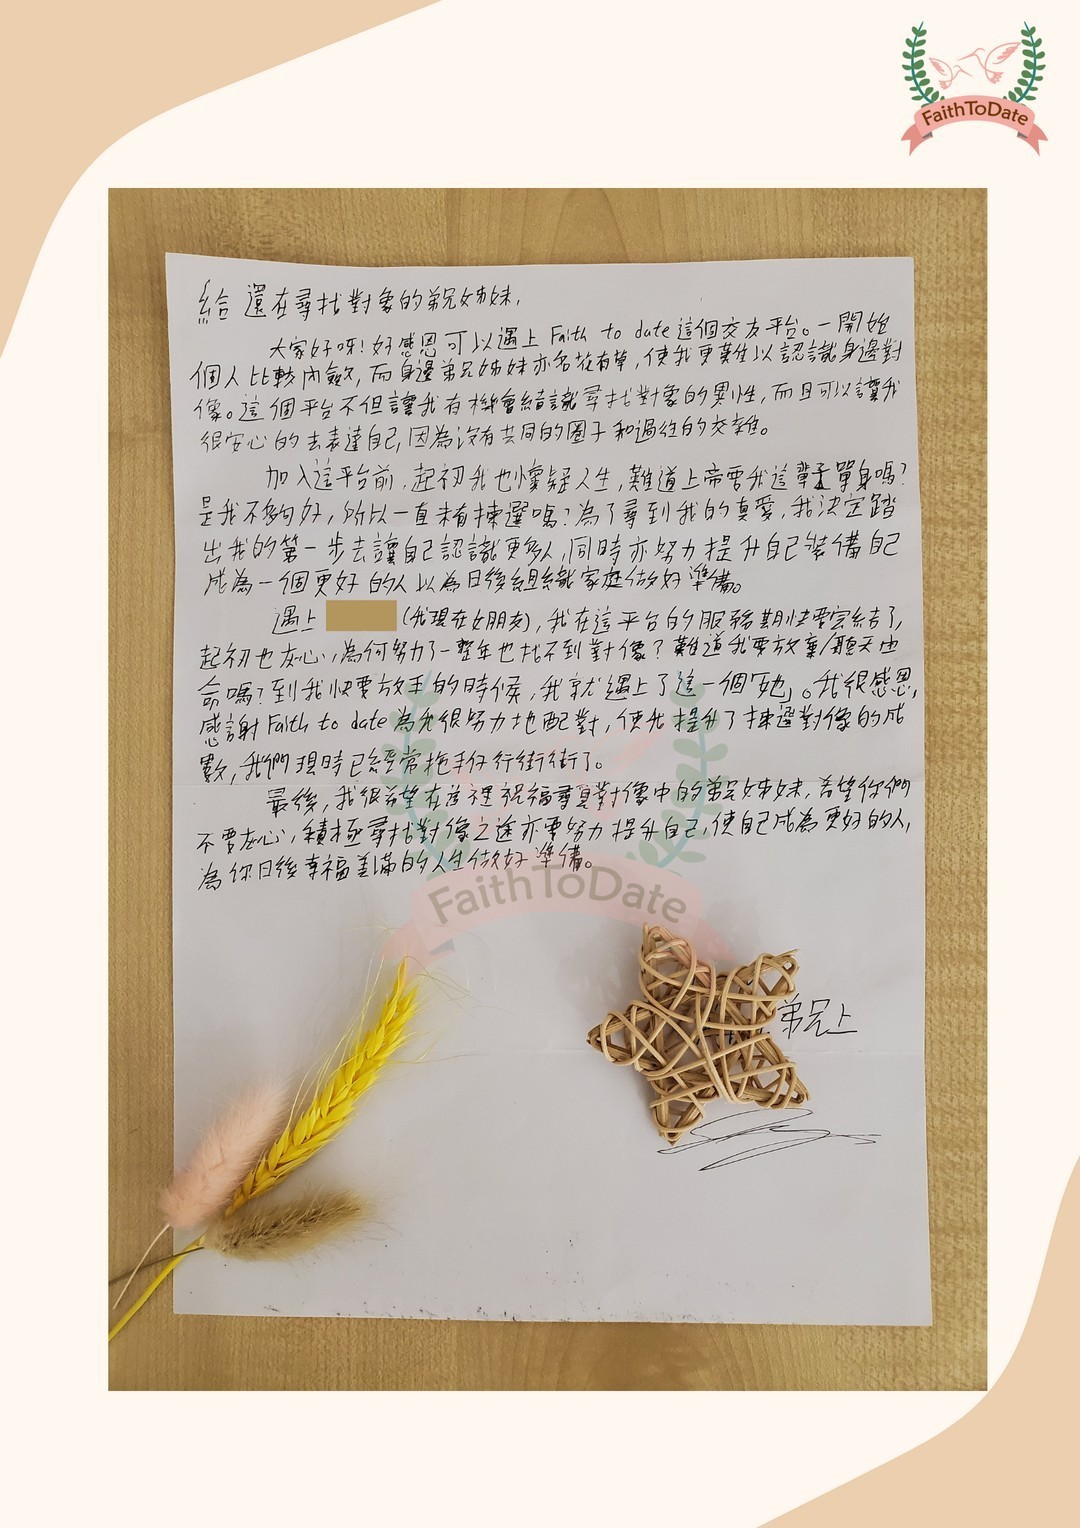 FaithToDate
給 還在尋找對象的弟兄姊妹,
大家好呀!好感恩可以遇上 Faith to date 這個交友平台。一開始
個人比較內斂, 而身邊弟兄姊妹亦名花有草, 使我更難以認識身邊對
像。這個平台不但讓我有機會結識尋找對象的異性, 而且可以讓我
很安心的去表達自己, 因為沒有共同的圈子和過往的交雜。
加入這平台前, 起初我也懷疑人生, 難道上帝要我這輩子單身嗎?
是我不夠好, 所以一直未有揀選嗎? 為了尋到我的真愛, 我決定踏
出我的第一步去讓自己認識更多人, 同時亦努力提升自己裝備自己
成為一個更好的人以為日後組織家庭做好準備。
遇上 (我現在女朋友), 我在這平台的服務期快要完結了,
起初也灰心, 為何努力了一整年也找不到對像? 難道我要放棄/聽天由
命嗎? 到我快要放手的時候, 我就遇上了這一個「她」。我很感恩,
感謝 Faith to date 為我很努力地配對, 使我提升了揀選對像的成
數, 我們現時已經常拖手仔行街街了。
最後, 我很希望在這裡祝福尋覓對像中的弟兄姊妹, 希望你們
不要灰心, 積極尋找對像之途亦要努力提升自己, 使自己成為更好的人,
為你日後幸福美滿的人生做好準備。
FaithToDate
弟兄上